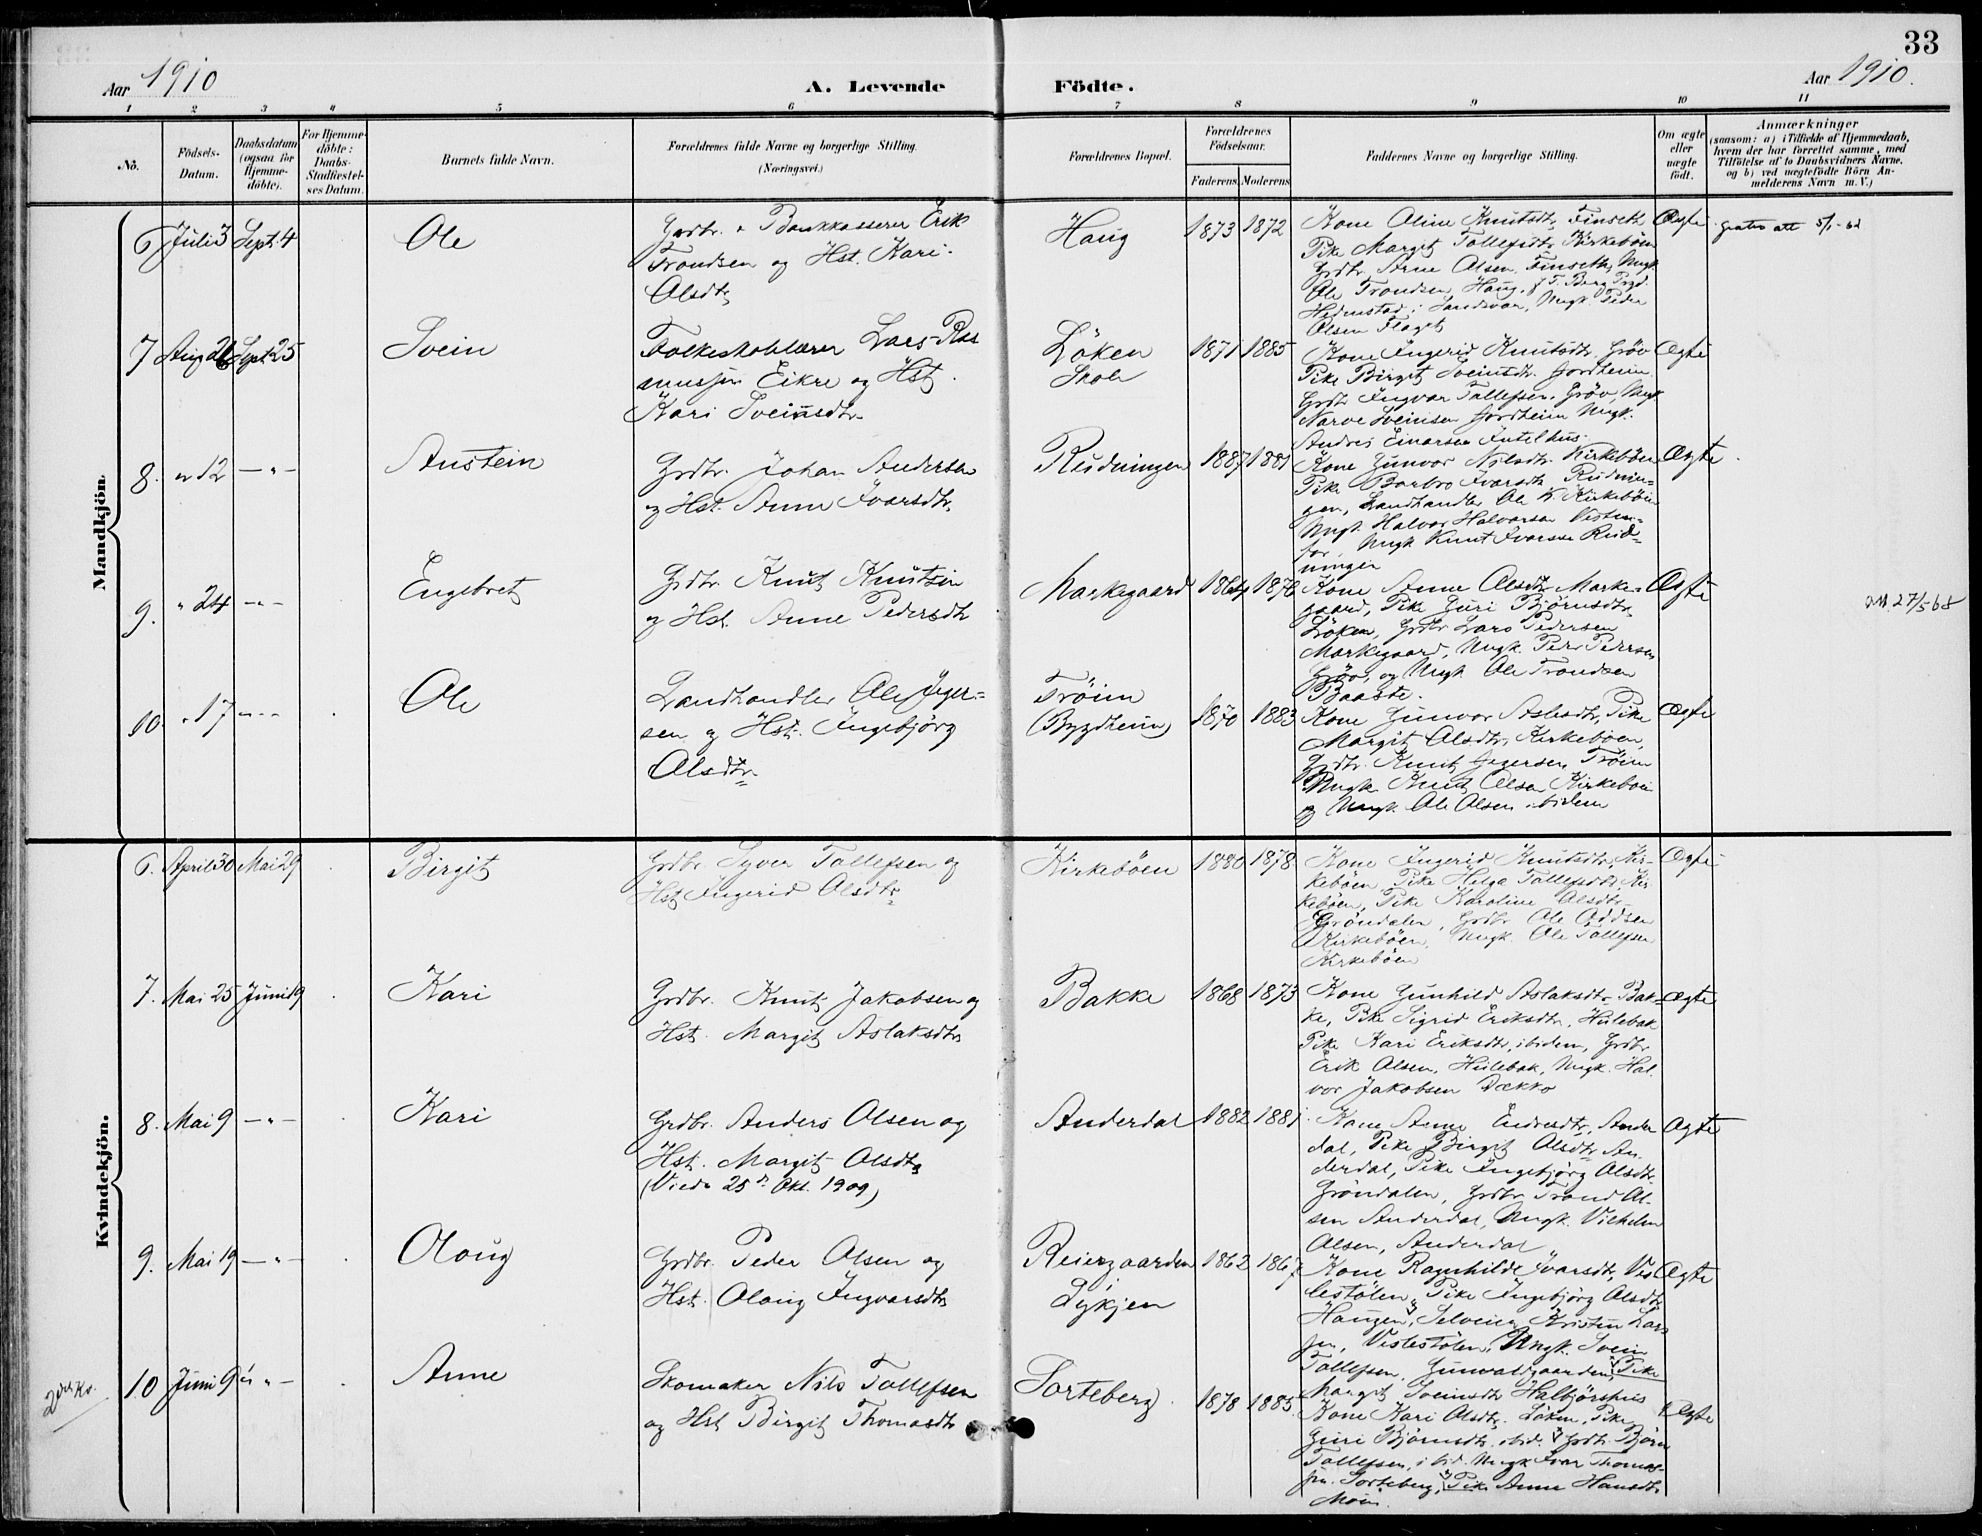 33
Aar 1910
A. Levende Födte.
Aar 1910.
1 2 3 4 5 6 7 8 9 10 11
No.
Födsels-
Datum.
Daabsdatum
(ogsaa for
Hjemme-
döbte).
For Hjemme-
döbte:
Daabs-
Stadfæstel-
ses Datum.
Barnets fulde Navn.
Forældrenes fulde Navne og borgerlige Stilling.
(Næringsvei.)
Forældrenes Bopæl.
Forældrenes
Födselsaar.
Faderens. Moderens
Faddernes Navne og borgerlige Stilling.
Om ægte
eller
uægte
födt.
Anmærkninger
(saasom: a) i Tilfælde af Hjemmedaab,
hvem der har forrettet samme, med
Tilföielse af to Daabsvidners Navne,
og b) ved uægtefödte Börn An-
melderens Navn m. V.)
Mandkjön.
6 Juli 3 Sept. 4
Ole
Grdbr. & Bankkasserer Erik
Trondsen og Hst. Kari
Olsdtr
Haug
1873 1872
Kone Oline Knutsdtr, Finseth
Pike Margit Tollefsdtr Kirkeböen
Grdbr. Arne Olsen, Finseth, Ungk.
Ole Trondsen, Haug,
Hedenstad i Sandsvær, Ungk. Peder
Olsen Flaget
Ægte
gratis att 5/1-62
7 Aug 26 Sept. 25
Svein
Folkeskolelærer Lars Ras
mussen Eikre og Hst.
Kari Sveinsdtr.
Löken
Skole
1871 1885
Kone Ingerid Knutsdtr. Gröv
Pike Birgit Sveinsdtr. Jordheim
Grdb. Ingvar Tollefsen, Gröv, Ungk
Narve Sveinsen Jordheim Ungk.
Andres Einarsen Intelhus.
Ægte
8. " 12 — " —
Austein
Grdbr. Johan Andersen
og Hst. Anne Ivarsdtr.
Rudningen
1887 1881
Kone Gunvor Nilsdtr. Kirkeböen
Pike Barbro Ivarsdtr, Rudnin-
gen, Landhandler Ole K. Kirkeböen
Ungk. Halvor Halvorsen
Ungk Knut Ivarsen Rud-
ningen
Ægte.
9. " 24 — " —
Engebret
Grdbr. Knut Knutsen
og Hst. Anne Pedersdtr
Markegaard
1864 1876
Kone Anne Olsdtr, Marke-
gaard, Pike Guri Björnsdtr.
Löken, Grdbr Lars Pedersen
Markegaard, Ungk. Per Pedersen
Gröv, og Ungk Ole Trondsen
Baaste.
Ægte
att 27/5 68
10. " 17 — " —
Ole
Landhandler Ole Jeger-
sen og Hst. Ingebjörg
Olsdtr.
Tröim
(Bygdheim)
1870 1883
Kone Gunvor Aslesdtr, Pike
Margit Olsdtr, Kirkeböen,
Grdbr. Knut Jegersen, Tröim
Ungk Knut Olsen Kirkeböen
og Ungk. Ole Olsen ibidem
Ægte
Kvindekjön.
6. April 30 Mai 29
Birgit
Grdbr. Syver Tollefsen og
Hst Ingerid Olsdtr.
Kirkeböen
1880 1878
Kone Ingerid Knutsdtr, Kir-
keböen, Pike Helga Tollefsdtr, Kir-
keböen, Pike Karoline Olsdtr.
Gröndalen, Grdbr. Ole Oddsen
Kirkeböen, Ungk. Ole Tollefsen
Kirkeböen
Ægte
7. Mai 25 Juni 19
Kari
Grdbr. Knut Jakobsen og
Hst. Margit Aslaksdtr
Bakke
1868 1873
Kone Gunhild Aslaksdtr. Bak-
ke, Pike Sigrid Eriksdtr, Hulebak
Pike Kari Eriksdtr, ibidem, Grdbr
Erik Olsen, Hulebak, Ungk. Hal-
vor Jakobsen Dækko
Ægte
8. Mai 9 — " —
Kari
Grdbr. Anders Olsen og
Hst. Margit Olsdtr
(Viede 25de Okt. 1909)
Anderdal
1882 1881
Kone Anne Endresdtr, Ander
dal, Pike Birgit Olsdtr, An-
derdal, Pike Ingebjörg Olsdtr
Gröndalen, Grdbr Trond Ol-
sen Anderdal, Ungk. Vilhelm
Olsen, Anderdal
Ægte
9. Mai 19 — " —
Olaug
Grdbr. Peder Olsen og
Hst. Olaug Ingvarsdtr
Reiergaarden
i
Lykjen
1862 1867
Kone Ragnhilde Ivarsdtr, Ves
lestölen, Pike Ingebjörg Olsdtr
Haugen, Selveier Kristen Lars
sen, Veslestölen, Ungk. Svein
Tollefsen, Gunvaldgaarden, Pike
Margit Sveinsdtr Halbjörshus
Ægte
2den Kv.
10 Juni 9 " —
Anne
Skomaker Nils Tollefsen
og Hst Birgit Thomasdtr
Sorteberg.
1878 1885
Kone Kari Olsdtr, Löken, Pike
Guri Björnsdtr ibid. Grdbr. Björn
Tollefsen, ibid. Ungk Ivar Thomas-
sen Sorteberg, Pike Anne Hansdtr
Moen.
Ægte